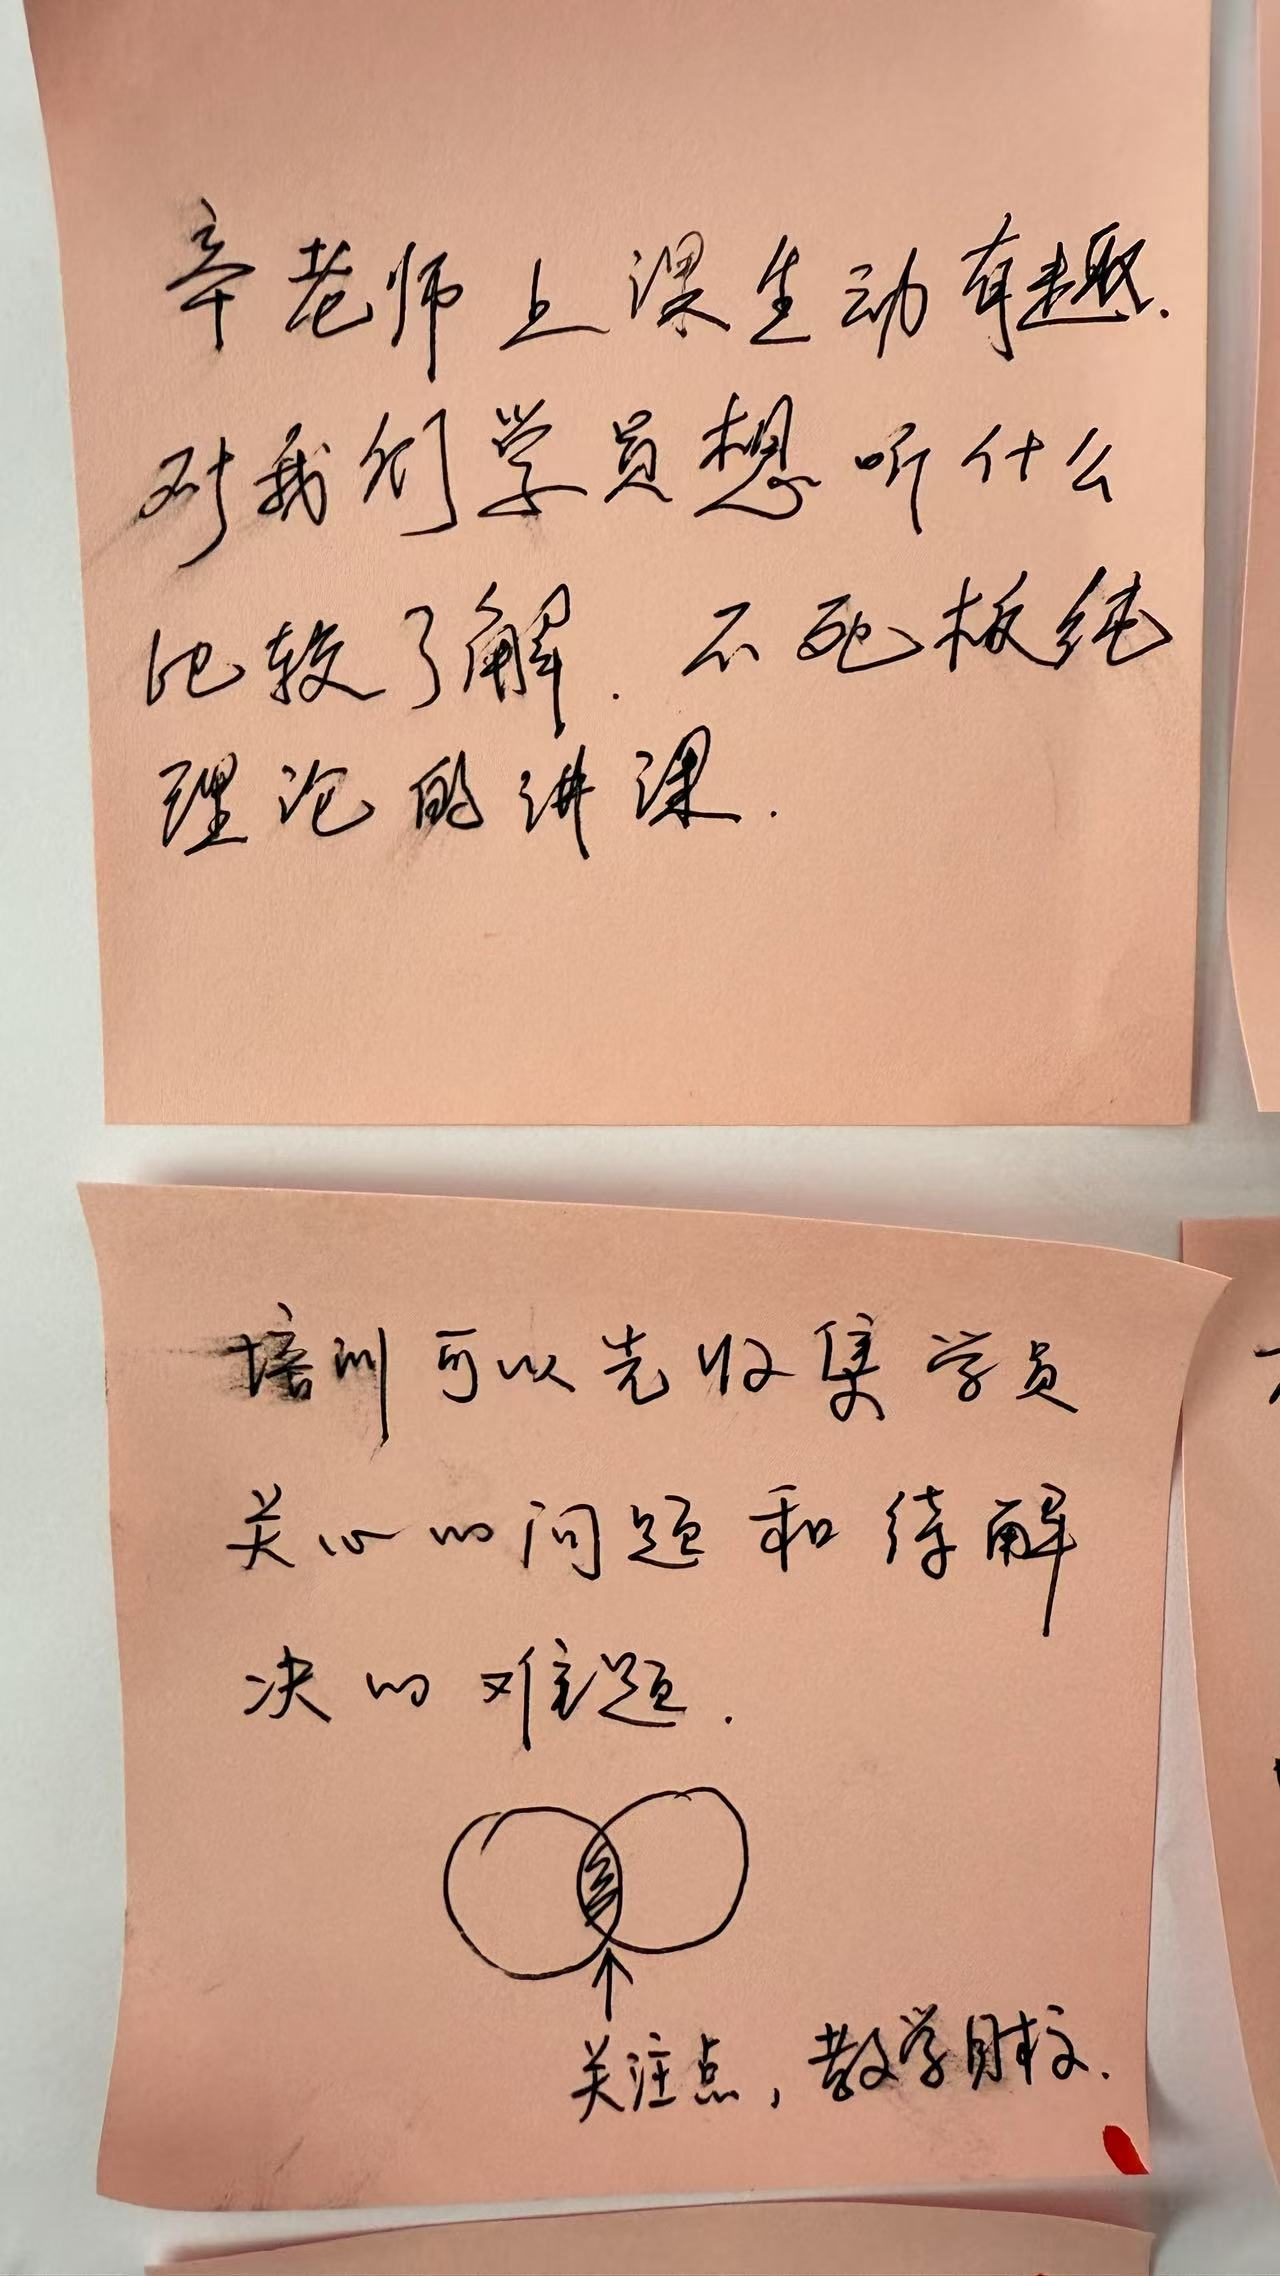 辛老师上课生动有趣.
对我们学员想听什么
比较了解.不死板纯
理论的讲课.
培训可以先收集学员
关心的问题和待解
决的难题.
关注点,教学目标.